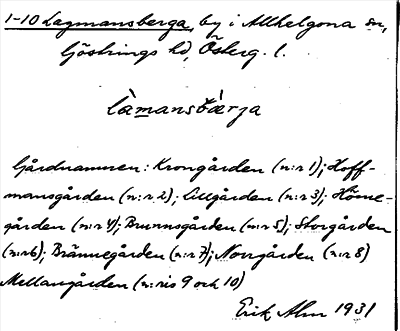 1-10 Lagmansberga, by i Allhelgona sn,
Göstrings hd, Österg. l.
làmansbæ̀rja
Gårdnamnen: Krongården (n:r 1); Hoff-
mansgården (n:r 2); Lillgården (n:r 3); Hörne-
gården (n:r 4); Brunnsgården (n:r 5); Storgården
(n:r 6); Brännegården (n:r 7); Norrgården (n:r 8)
Mellangården (n:ris 9 och 10)
Erik Alm 1931